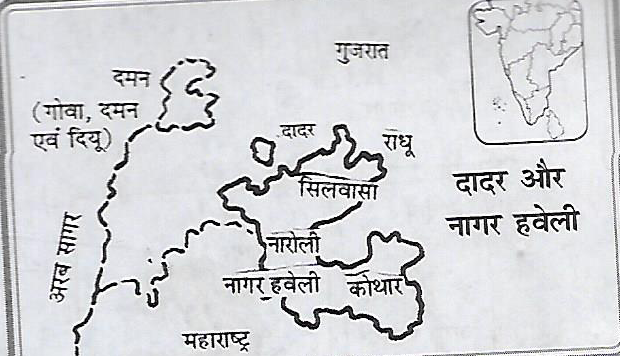 गुजरात
दमन
(गोवा, दमन
एवं दियू)
दादर
राधू
सिलवासा
दादर और
नागर हवेली
अरब सागर
नारोली
नागर हवेली
कोथार
महाराष्ट्र